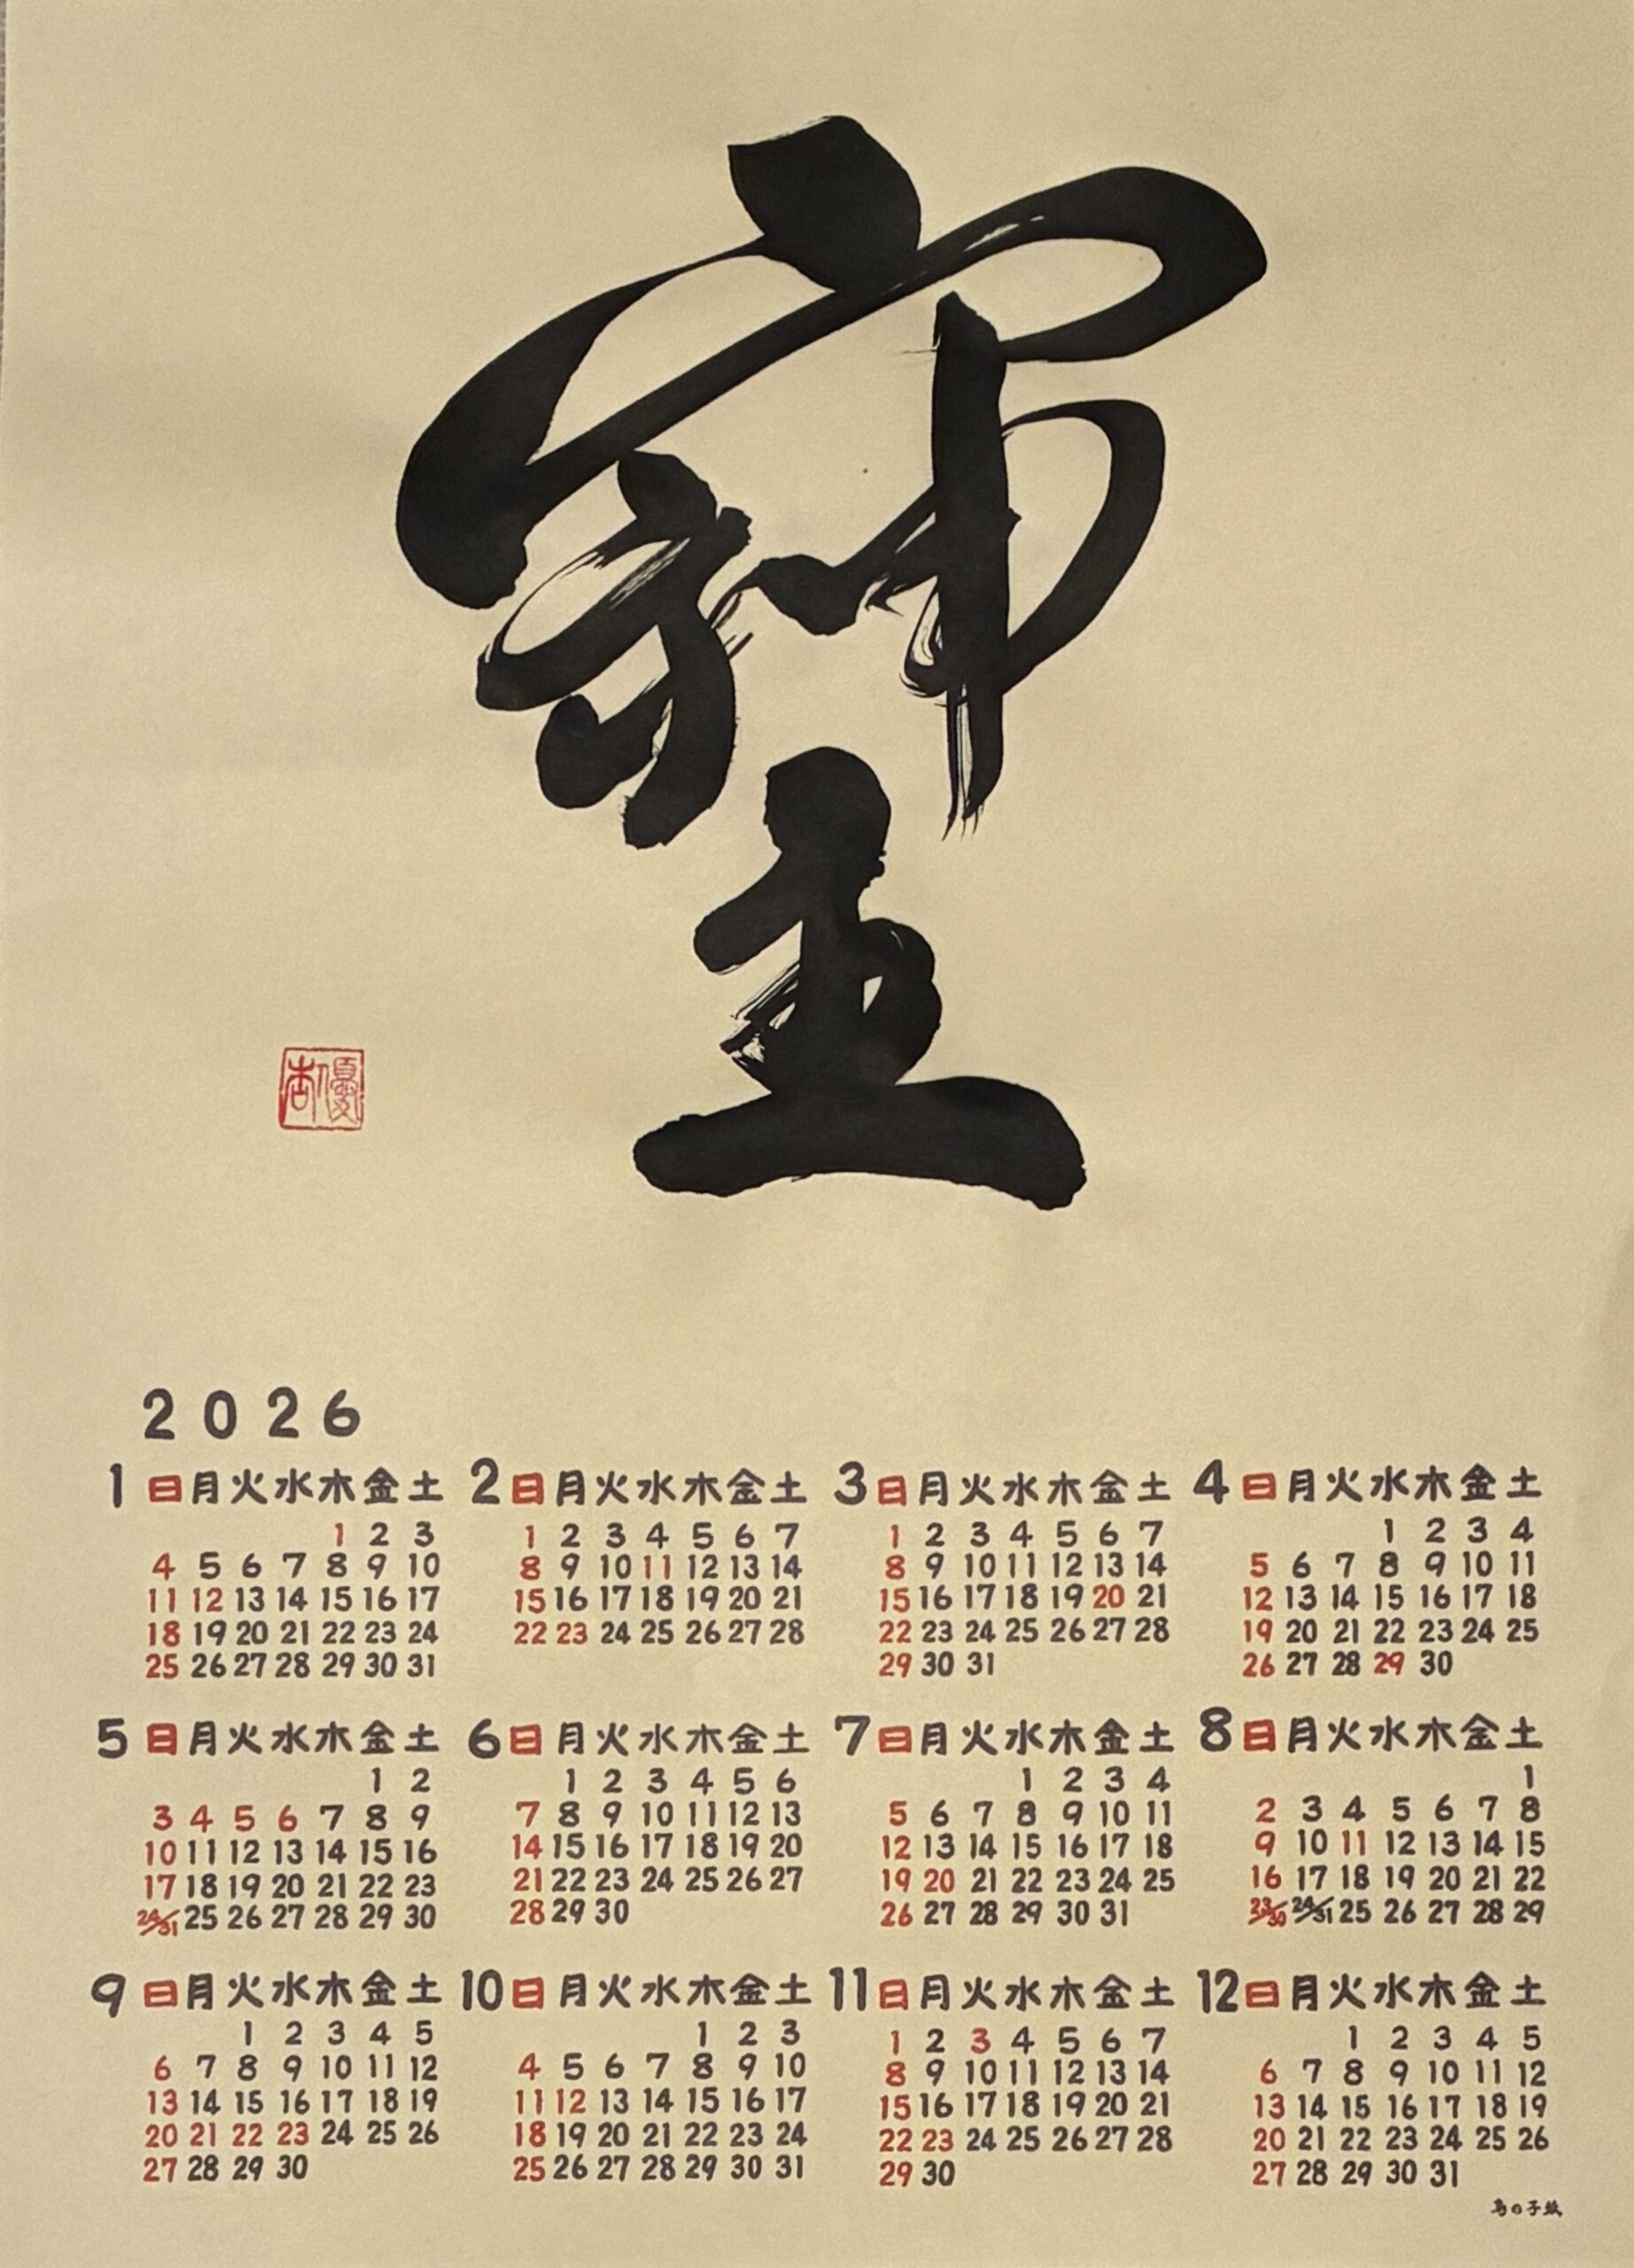 2026
1 日月火水木金土
1 2 3
4 5 6 7 8 9 10
11 12 13 14 15 16 17
18 19 20 21 22 23 24
25 26 27 28 29 30 31
2 日月火水木金土
1 2 3 4 5 6 7
8 9 10 11 12 13 14
15 16 17 18 19 20 21
22 23 24 25 26 27 28
3 日月火水木金土
1 2 3 4 5 6 7
8 9 10 11 12 13 14
15 16 17 18 19 20 21
22 23 24 25 26 27 28
29 30 31
4 日月火水木金土
1 2 3 4
5 6 7 8 9 10 11
12 13 14 15 16 17 18
19 20 21 22 23 24 25
26 27 28 29 30
5 日月火水木金土
1 2
3 4 5 6 7 8 9
10 11 12 13 14 15 16
17 18 19 20 21 22 23
24/31 25 26 27 28 29 30
6 日月火水木金土
1 2 3 4 5 6
7 8 9 10 11 12 13
14 15 16 17 18 19 20
21 22 23 24 25 26 27
28 29 30
7 日月火水木金土
1 2 3 4
5 6 7 8 9 10 11
12 13 14 15 16 17 18
19 20 21 22 23 24 25
26 27 28 29 30 31
8 日月火水木金土
1
2 3 4 5 6 7 8
9 10 11 12 13 14 15
16 17 18 19 20 21 22
23/30 24/31 25 26 27 28 29
9 日月火水木金土
1 2 3 4 5
6 7 8 9 10 11 12
13 14 15 16 17 18 19
20 21 22 23 24 25 26
27 28 29 30
10 日月火水木金土
1 2 3
4 5 6 7 8 9 10
11 12 13 14 15 16 17
18 19 20 21 22 23 24
25 26 27 28 29 30 31
11 日月火水木金土
1 2 3 4 5 6 7
8 9 10 11 12 13 14
15 16 17 18 19 20 21
22 23 24 25 26 27 28
29 30
12 日月火水木金土
1 2 3 4 5
6 7 8 9 10 11 12
13 14 15 16 17 18 19
20 21 22 23 24 25 26
27 28 29 30 31
鳥の子紙